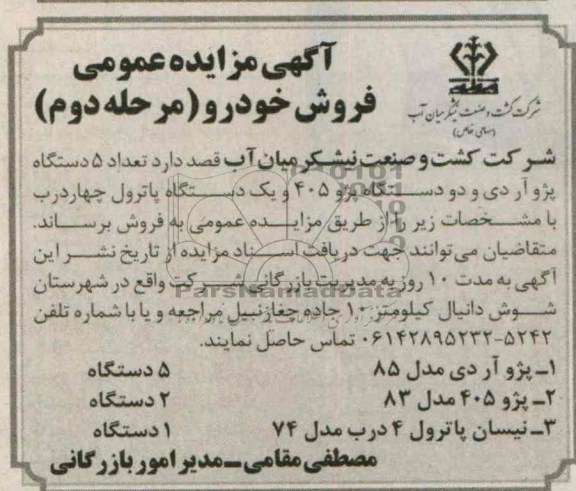 آگهی مزایده عمومی
فروش خودرو (مرحله دوم)
شرکت کشت و صنعت نیشکر میان آب
(سهامی خاص)
شرکت کشت و صنعت نیشکر میان آب قصد دارد تعداد ۵ دستگاه
پژو آر دی و دو دستگاه پژو ۴۰۵ و یک دستگاه پاترول چهاردرب
با مشخصات زیر را از طریق مزایده عمومی به فروش برساند.
متقاضیان می‌توانند جهت دریافت اسناد مزایده از تاریخ نشر این
آگهی به مدت ۱۰ روز به مدیریت بازرگانی شرکت واقع در شهرستان
شوش دانیال کیلومتر ۱۰ جاده چغازنبیل مراجعه و یا با شماره تلفن
۵۲۴۲-۰۶۱۴۲۸۹۵۲۳۲ تماس حاصل نمایند.
۱ـ پژو آر دی مدل ۸۵ ۵ دستگاه
۲ـ پژو ۴۰۵ مدل ۸۳ ۲ دستگاه
۳ـ نیسان پاترول ۴ درب مدل ۷۴ ۱ دستگاه
مصطفی مقامی ـ مدیر امور بازرگانی
ParsNamadData